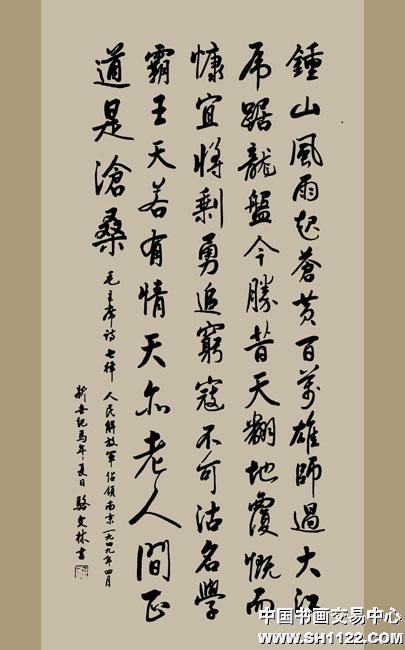 鍾山風雨起蒼黄百萬雄師過大江
虎踞龍盤今勝昔天翻地覆慨而
慷宜將剩勇追窮寇不可沽名學
霸王天若有情天亦老人間正
道是滄桑
毛主席詩七律 人民解放軍佔領南京一九四九年四月
新世紀馬年夏日 駱文林書
中国书画交易中心
www.SH1122.com